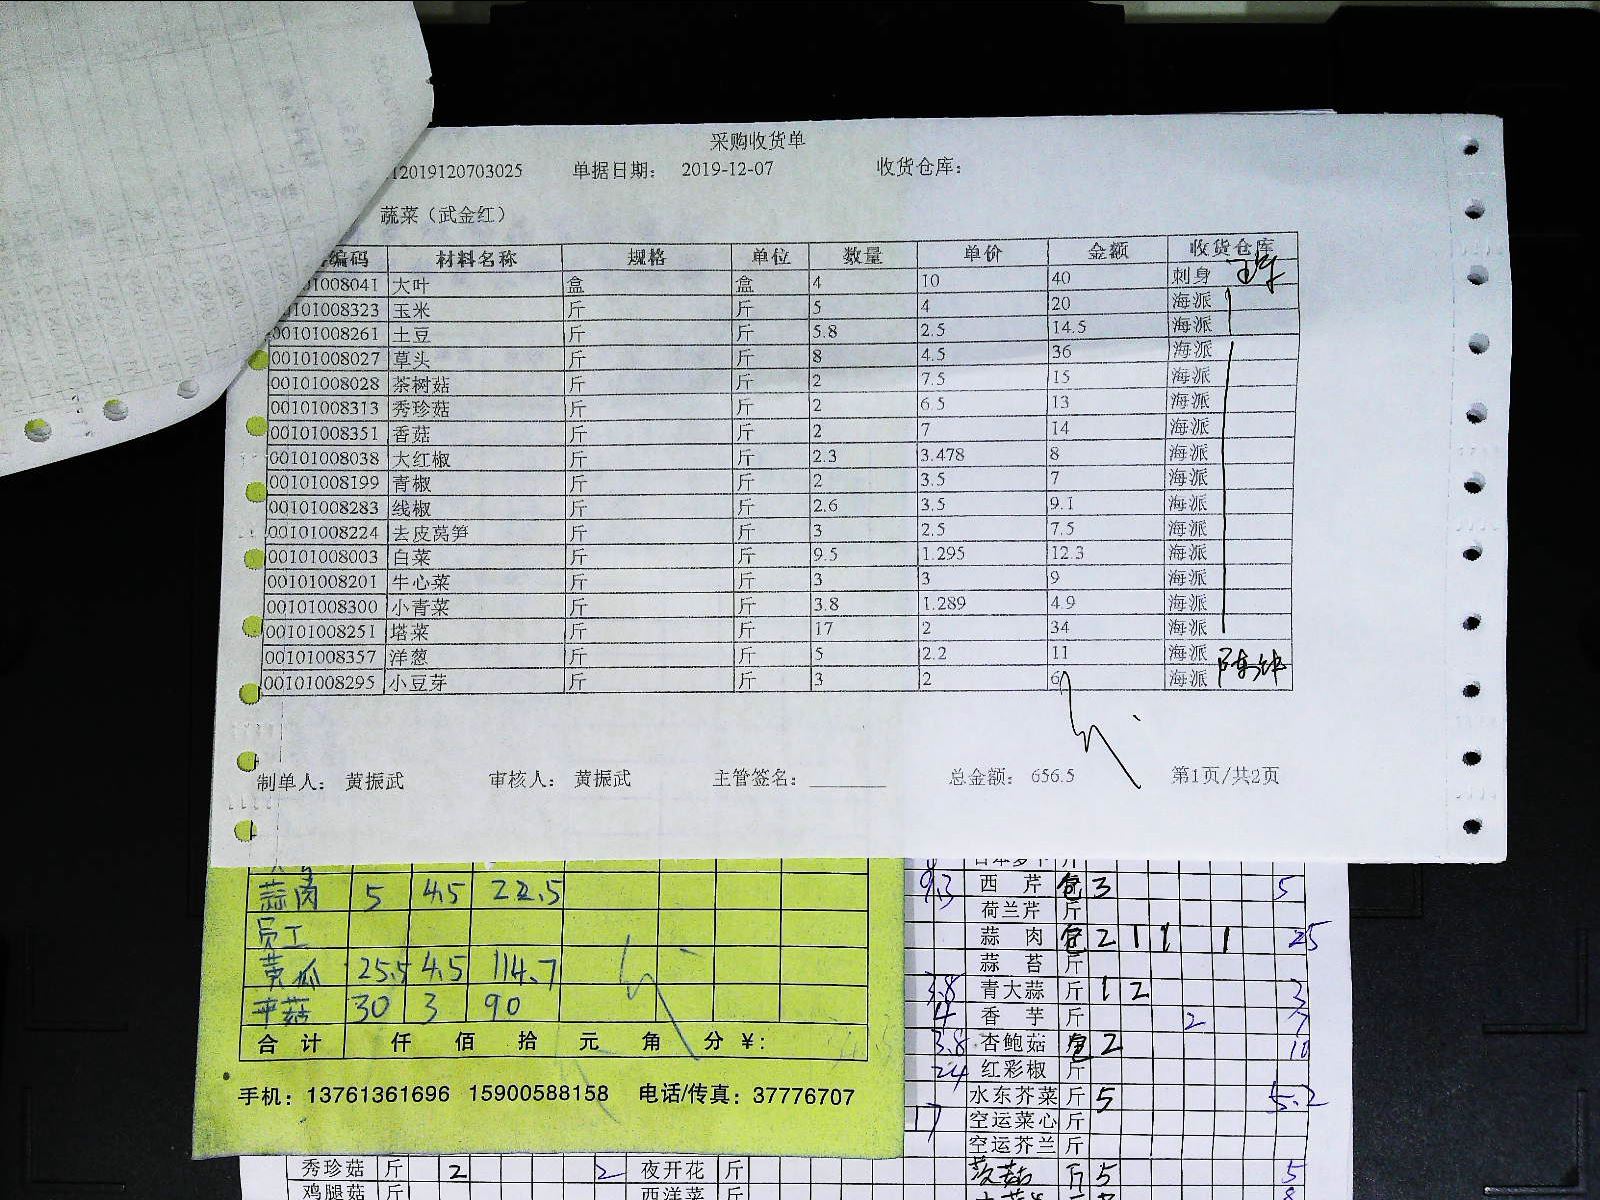 采购收货单
12019120703025 单据日期： 2019-12-07 收货仓库：
蔬菜（武金红）
编码 材料名称 规格 单位 数量 单价 金额 收货仓库
01008041 大叶 盒 盒 4 10 40 刺身
00101008323 玉米 斤 斤 5 4 20 海派
00101008261 土豆 斤 斤 5.8 2.5 14.5 海派
00101008027 草头 斤 斤 8 4.5 36 海派
00101008028 茶树菇 斤 斤 2 7.5 15 海派
00101008313 秀珍菇 斤 斤 2 6.5 13 海派
00101008351 香菇 斤 斤 2 7 14 海派
00101008038 大红椒 斤 斤 2.3 3.478 8 海派
00101008199 青椒 斤 斤 2 3.5 7 海派
00101008283 线椒 斤 斤 2.6 3.5 9.1 海派
00101008224 去皮莴笋 斤 斤 3 2.5 7.5 海派
00101008003 白菜 斤 斤 9.5 1.295 12.3 海派
00101008201 牛心菜 斤 斤 3 3 9 海派
00101008300 小青菜 斤 斤 3.8 1.289 4.9 海派
00101008251 塔菜 斤 斤 17 2 34 海派
00101008357 洋葱 斤 斤 5 2.2 11 海派
00101008295 小豆芽 斤 斤 3 2 6 海派
制单人： 黄振武 审核人： 黄振武 主管签名： 总金额： 656.5 第1页/共2页
蒜肉 5 4.5 22.5
员工
黄瓜 25.5 4.5 114.7
平菇 30 3 90
合计 仟 佰 拾 元 角 分 ¥：
手机：13761361696 15900588158 电话/传真：37776707
9.3 西芹 3 5
荷兰芹 斤
蒜肉 2 1 1 1 25
蒜苔 斤
3.8 青大蒜 斤 1 2 3
4 香芋 斤 2 7
3.8 杏鲍菇 2 10
24 红彩椒 斤
水东芥菜 斤 5 5.2
17 空运菜心 斤
空运芥兰 斤
秀珍菇 斤 2 2 夜开花 斤 斤 5 5
鸡腿菇 斤 西洋菜 斤